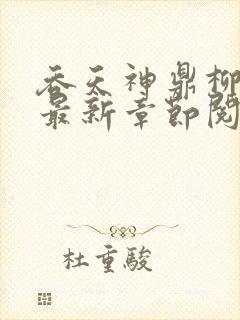 吞天神鼎柳
最新章節閱
杜重駿